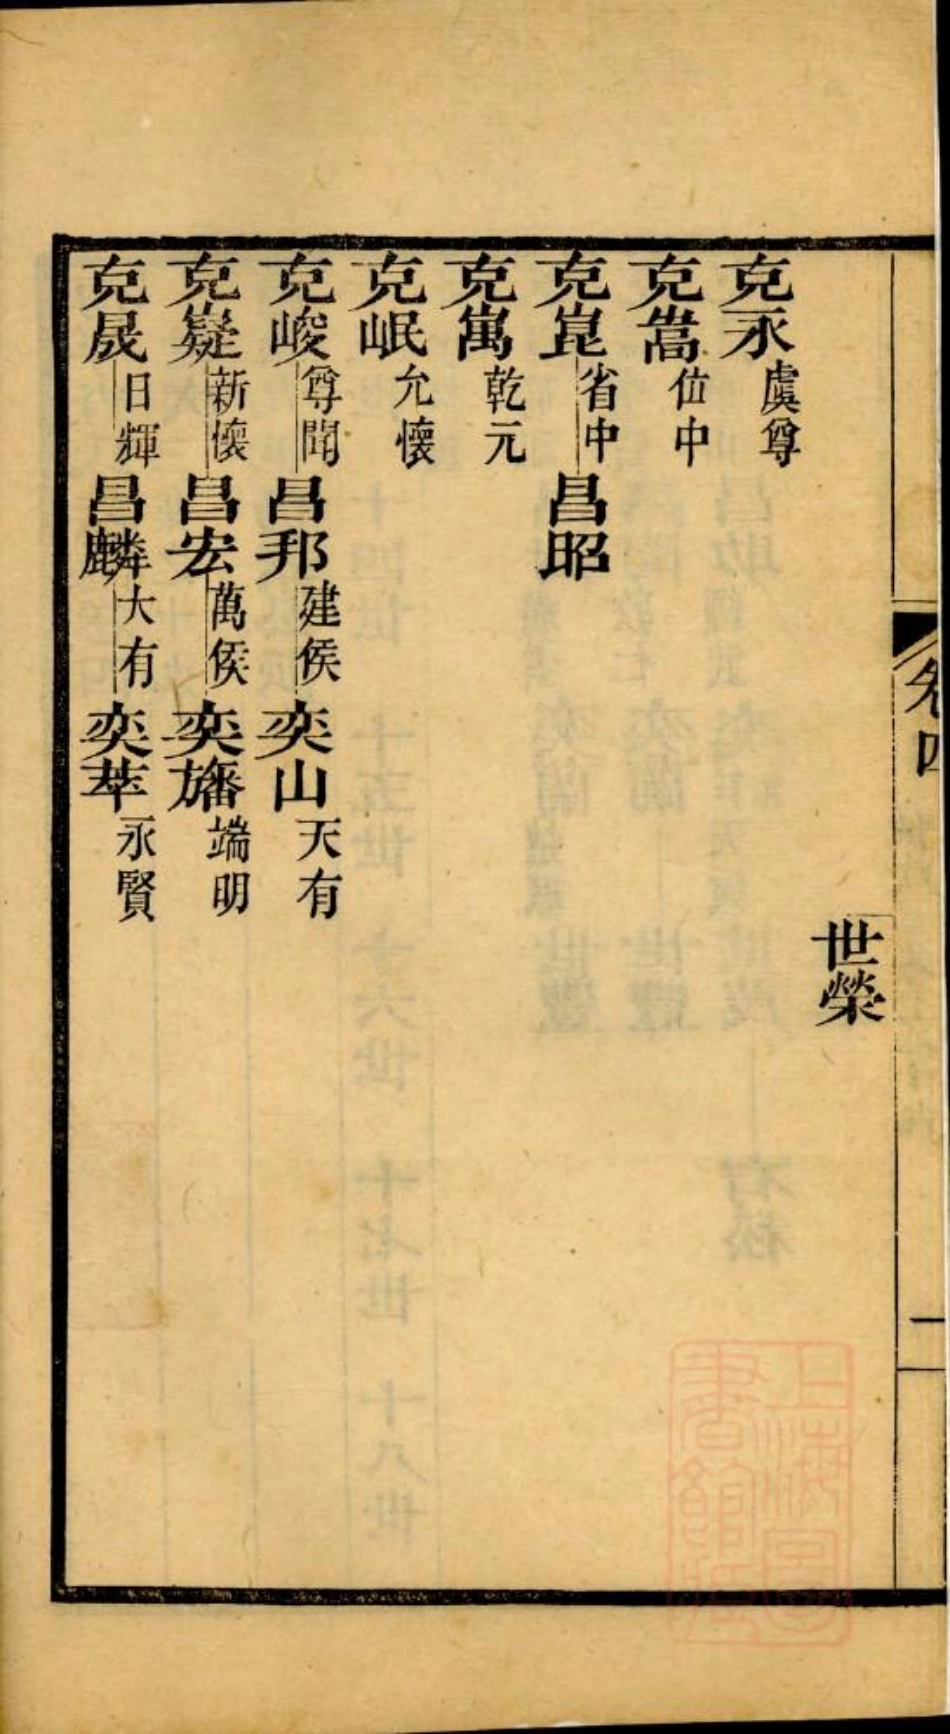 卷四
一
世榮
克永虞尊
克嵩位中
克崑省中昌昭
克嵩乾元
克岷允懷
克峻尊聞昌邦建侯奕山天有
克嶷新懷昌宏萬侯奕旛端明
克晟日輝昌麟大有奕萃永賢
上海圖書館藏